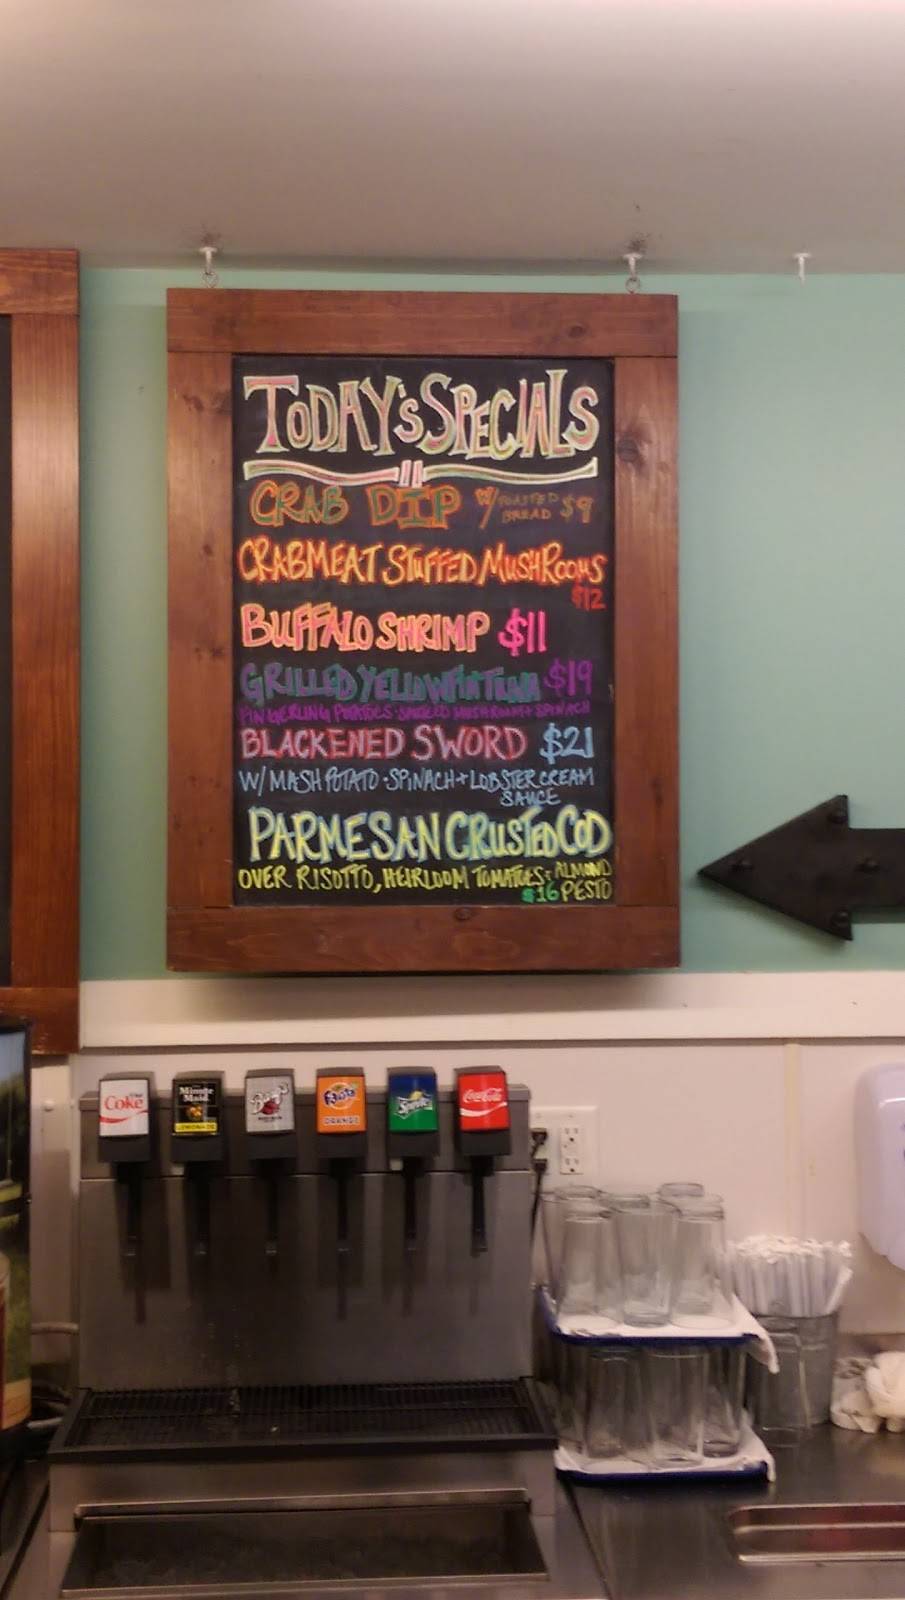 TODAY'S SPECIALS
CRAB DIP W/ TOASTED BREAD $9
CRABMEAT STUFFED MUSHROOMS
$12
BUFFALO SHRIMP $11
GRILLED YELLOWFIN TUNA $19
FINGERLING POTATOES MUSHROOM + SPINACH
BLACKENED SWORD $21
W/ MASH POTATO - SPINACH + LOBSTER CREAM
SAUCE
PARMESAN CRUSTED COD
OVER RISOTTO, HEIRLOOM TOMATOES + ALMOND
$16 PESTO
Coke
Minute Maid
LEMONADE
Barq's
Fanta
ORANGE
Sprite
Coca-Cola